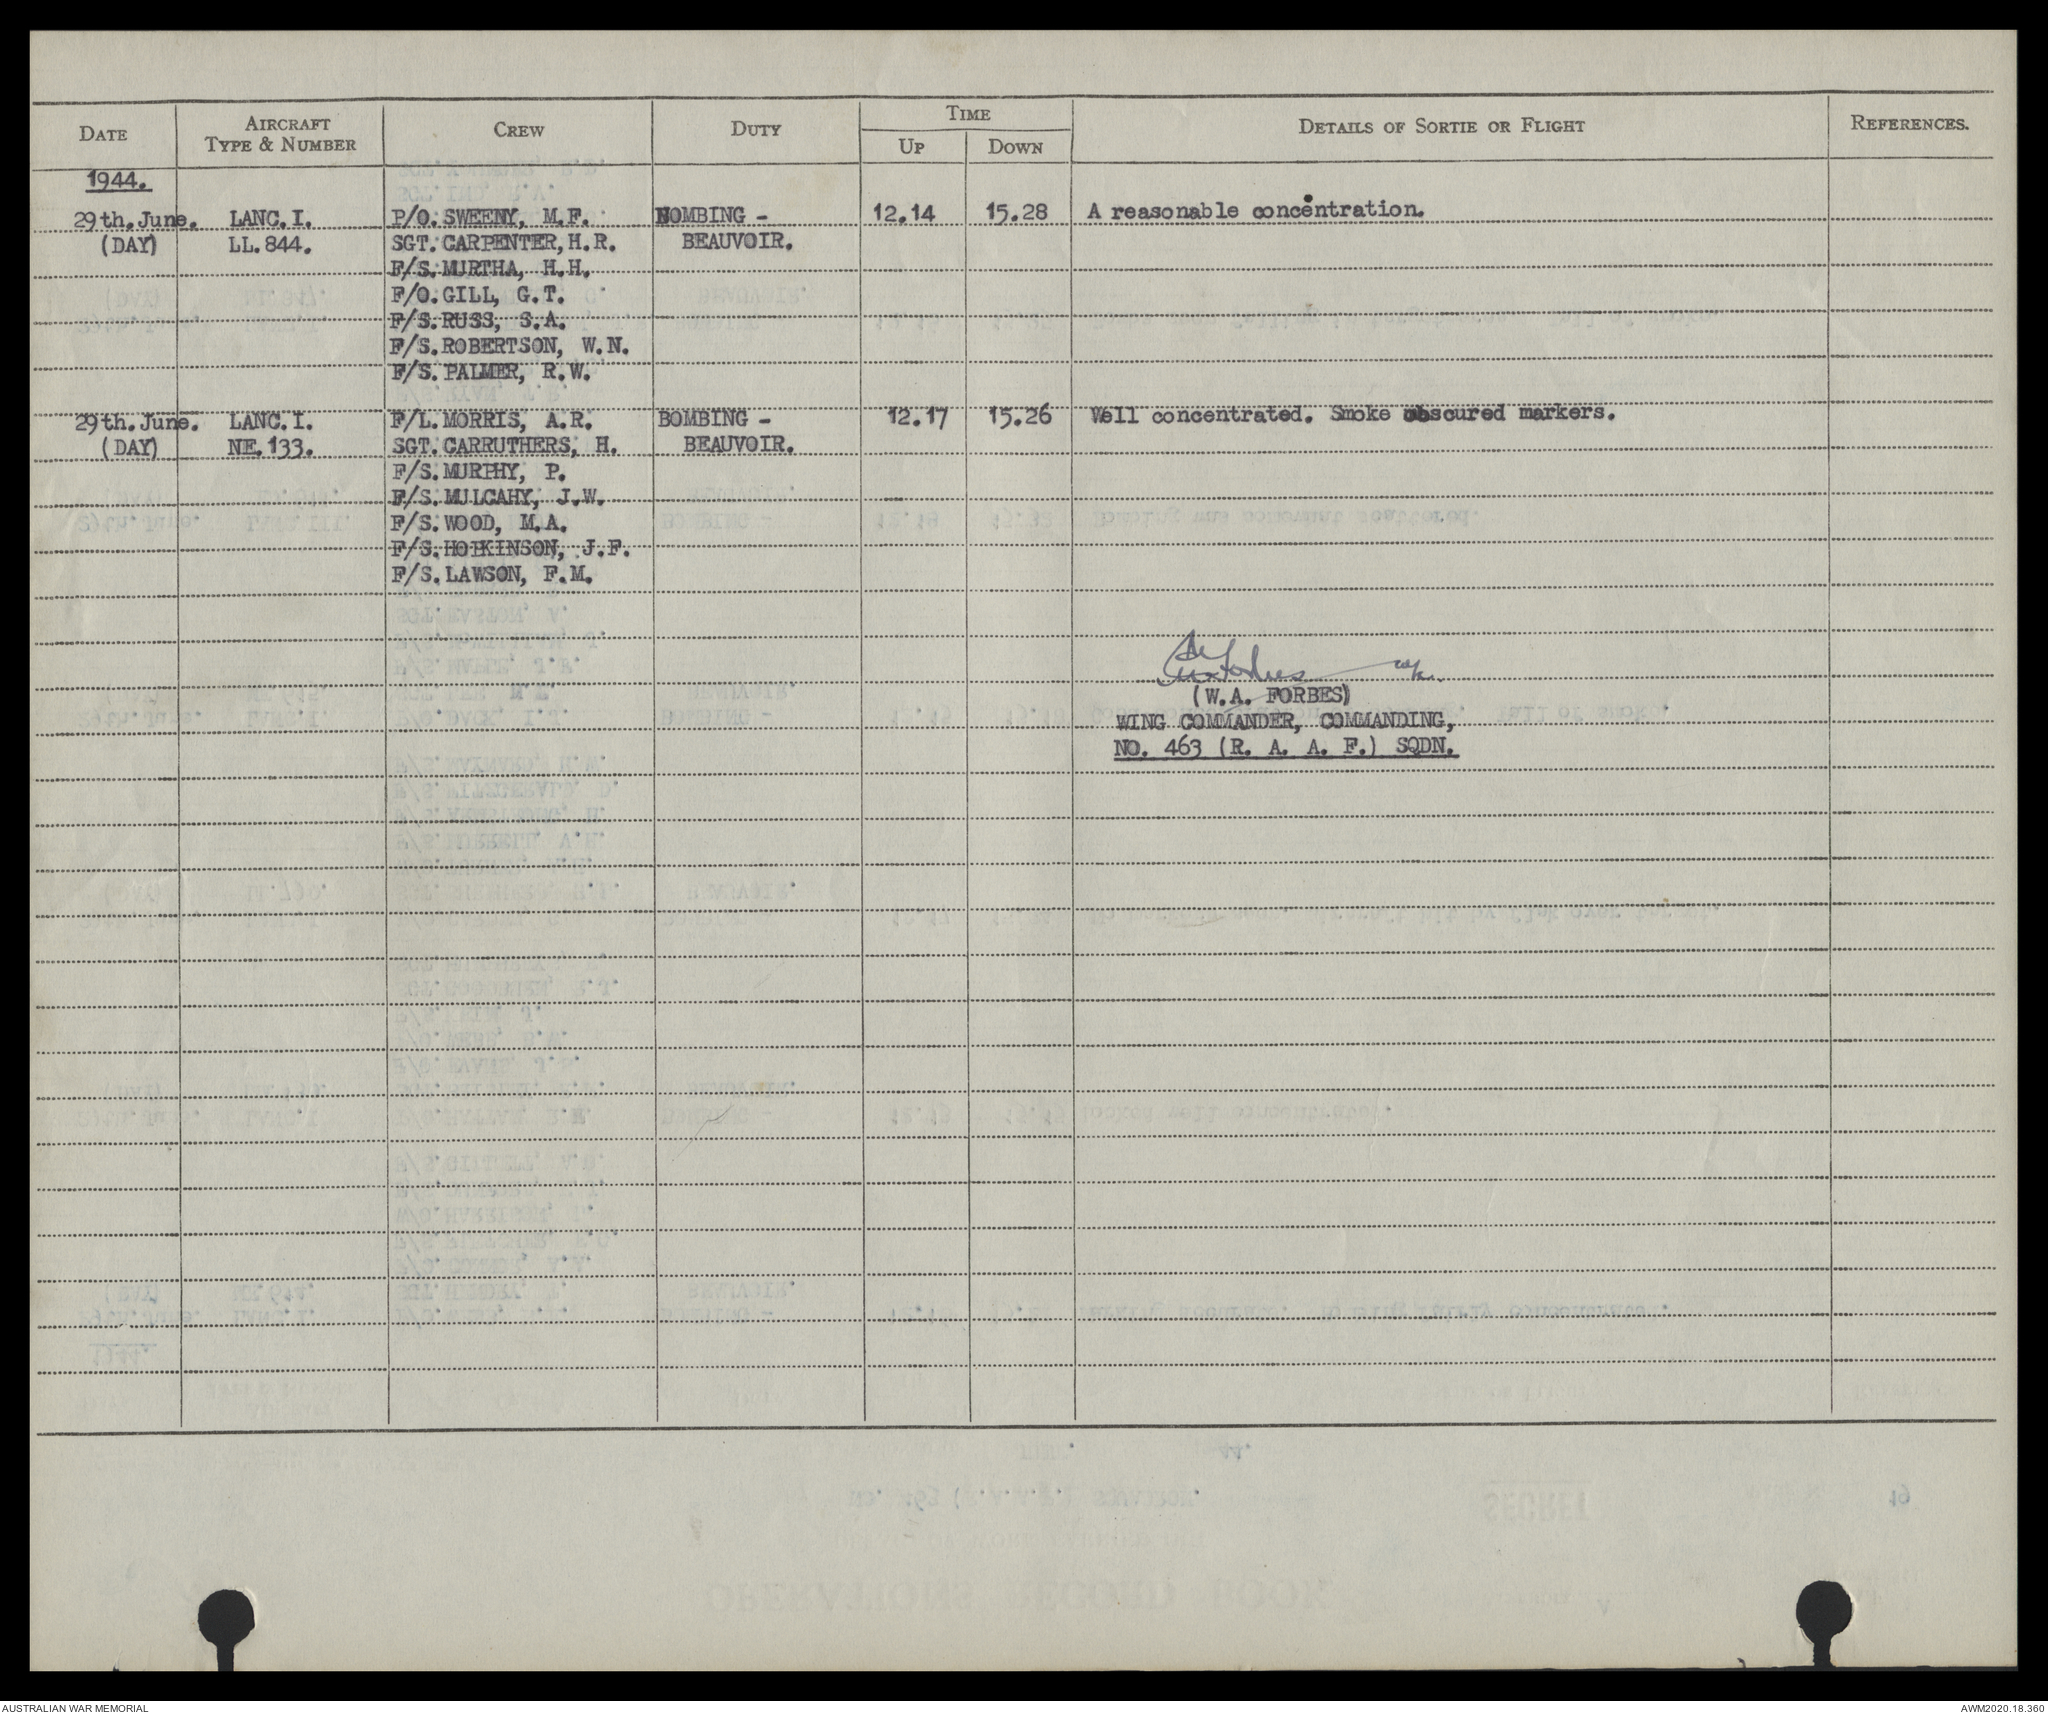 DATE AIRCRAFT TYPE & NUMBER CREW DUTY TIME UP DOWN DETAILS OF SORTIE OR FLIGHT REFERENCES.
1944.
29th.June. LANC.I. P/O.SWEENY, M.F. BOMBING - 12.14 15.28 A reasonable concentration.
(DAY) LL.844. SGT.CARPENTER,H.R. BEAUVOIR.
F/S.MURTHA, H.H.
F/O.GILL, G.T.
F/S.RUSS, S.A.
F/S.ROBERTSON, W.N.
F/S.PALMER, R.W.
29th.June. LANC.I. F/L.MORRIS, A.R. BOMBING - 12.17 15.26 Well concentrated. Smoke obscured markers.
(DAY) NE.133. SGT.CARRUTHERS, H. BEAUVOIR.
F/S.MURPHY, P.
F/S.MULCAHY, J.W.
F/S.WOOD, M.A.
F/S.HOPKINSON, J.F.
F/S.LAWSON, F.M.
(W.A. FORBES)
WING COMMANDER, COMMANDING,
NO. 463 (R. A. A. F.) SQDN.
AUSTRALIAN WAR MEMORIAL AWM2020.18.360